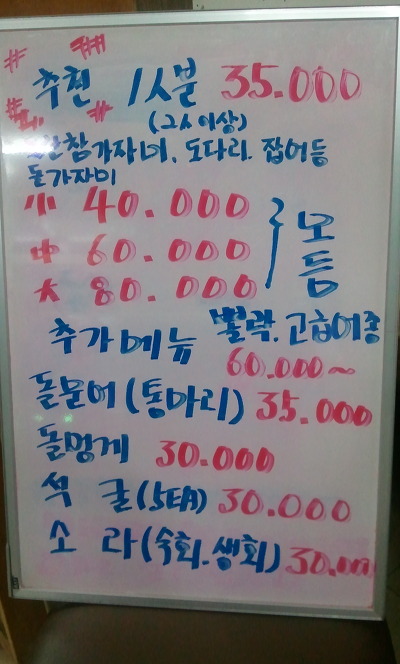 추천 1人분 35.000
(2人이상)
참가자미. 도다리. 잡어등
돌가자미
小 40.000
中 60.000 모듬
大 80.000
추가메뉴 뽈락. 고급어종
60.000~
돌문어(통마리) 35.000
돌멍게 30.000
석굴(5EA) 30.000
소라(숙회.생회) 30.000